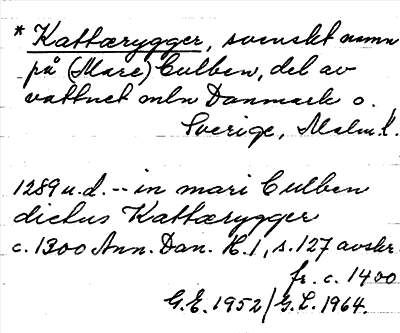 * Kattærygger, svenskt namn
på (Mare) Culben, del av
vattnet mln Danmark o.
Sverige, Malm.l.
1289 u.d. -- in mari Culben
dictus Kattærygger
c. 1300 Ann. Dan. H.1, s.127 avskr.
fr. c. 1400
G.E. 1952/G.L. 1964.